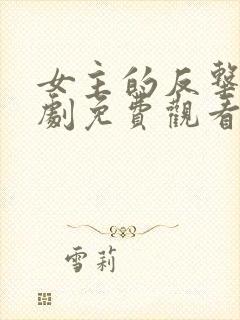 女主的反擊
劇免費觀看
雪莉